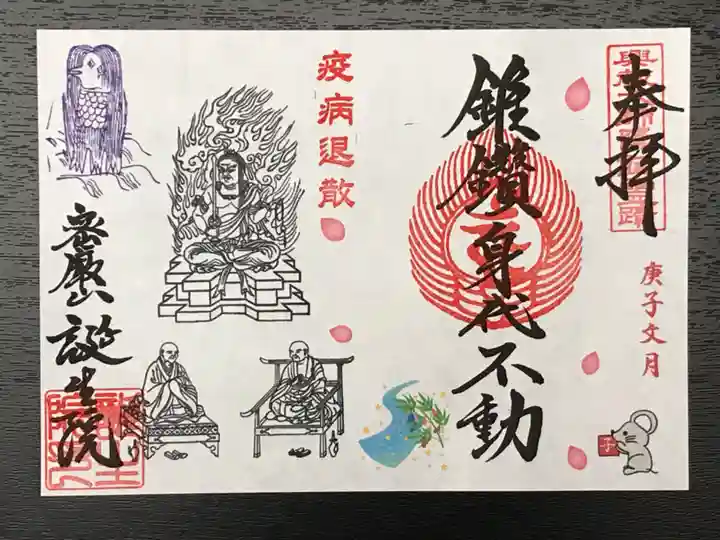 奉拝
庚子文月
子
錐鑽身代不動
疫病退散
密厳山
誕生院